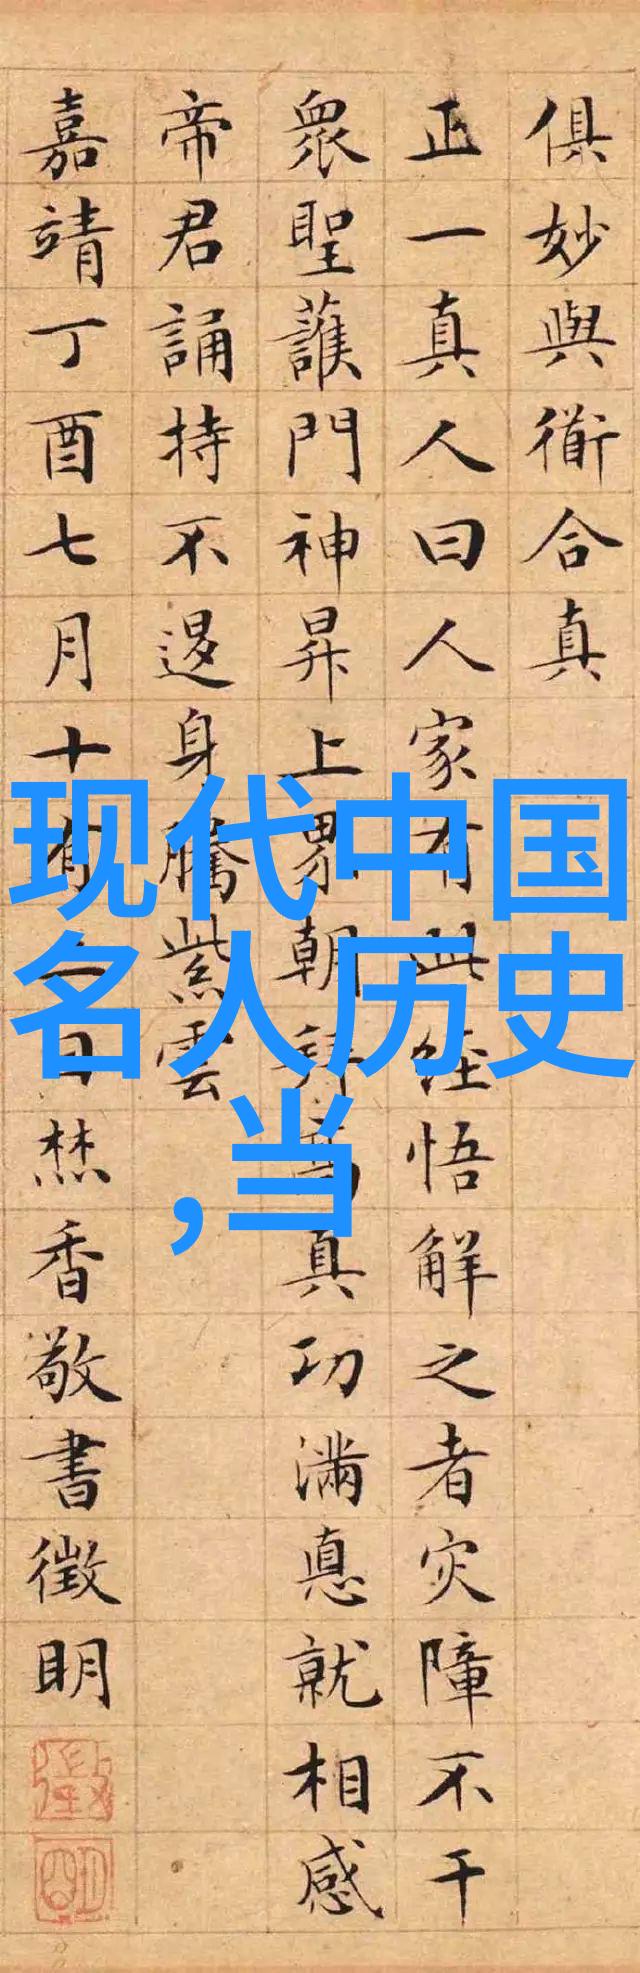 俱妙與衜合真
正一真人曰人家有此經悟解之者灾障不干
衆聖護門神昇上界朝拜高真功滿悳就相感
帝君誦持不退身騰紫雲
嘉靖丁酉七月十有一日焚香敬書徵明
现代中国
名人历史
,当